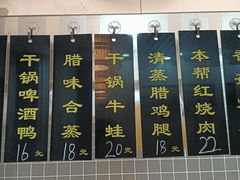 干锅啤酒鸭
16元
腊味合蒸
18元
干锅牛蛙
20元
清蒸腊鸡腿
18元
本帮红烧肉
22